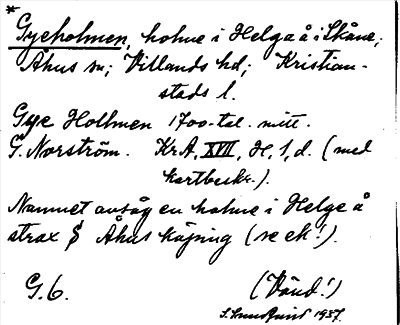 * Gyeholmen, holme i Helgaå i Skåne;
Åhus sn; Villands hd; Kristian-
stads l.
Gye Hollmen 1700-tal. mitt.
G. Norström. Kr.A, XVII, H, 1, d. (med
kartbeskr.).
Namnet avsåg en holme i Helge å
strax S Åhus köping (se ek!).
G. 6. (Vänd!)
S. Lundquist 1937.